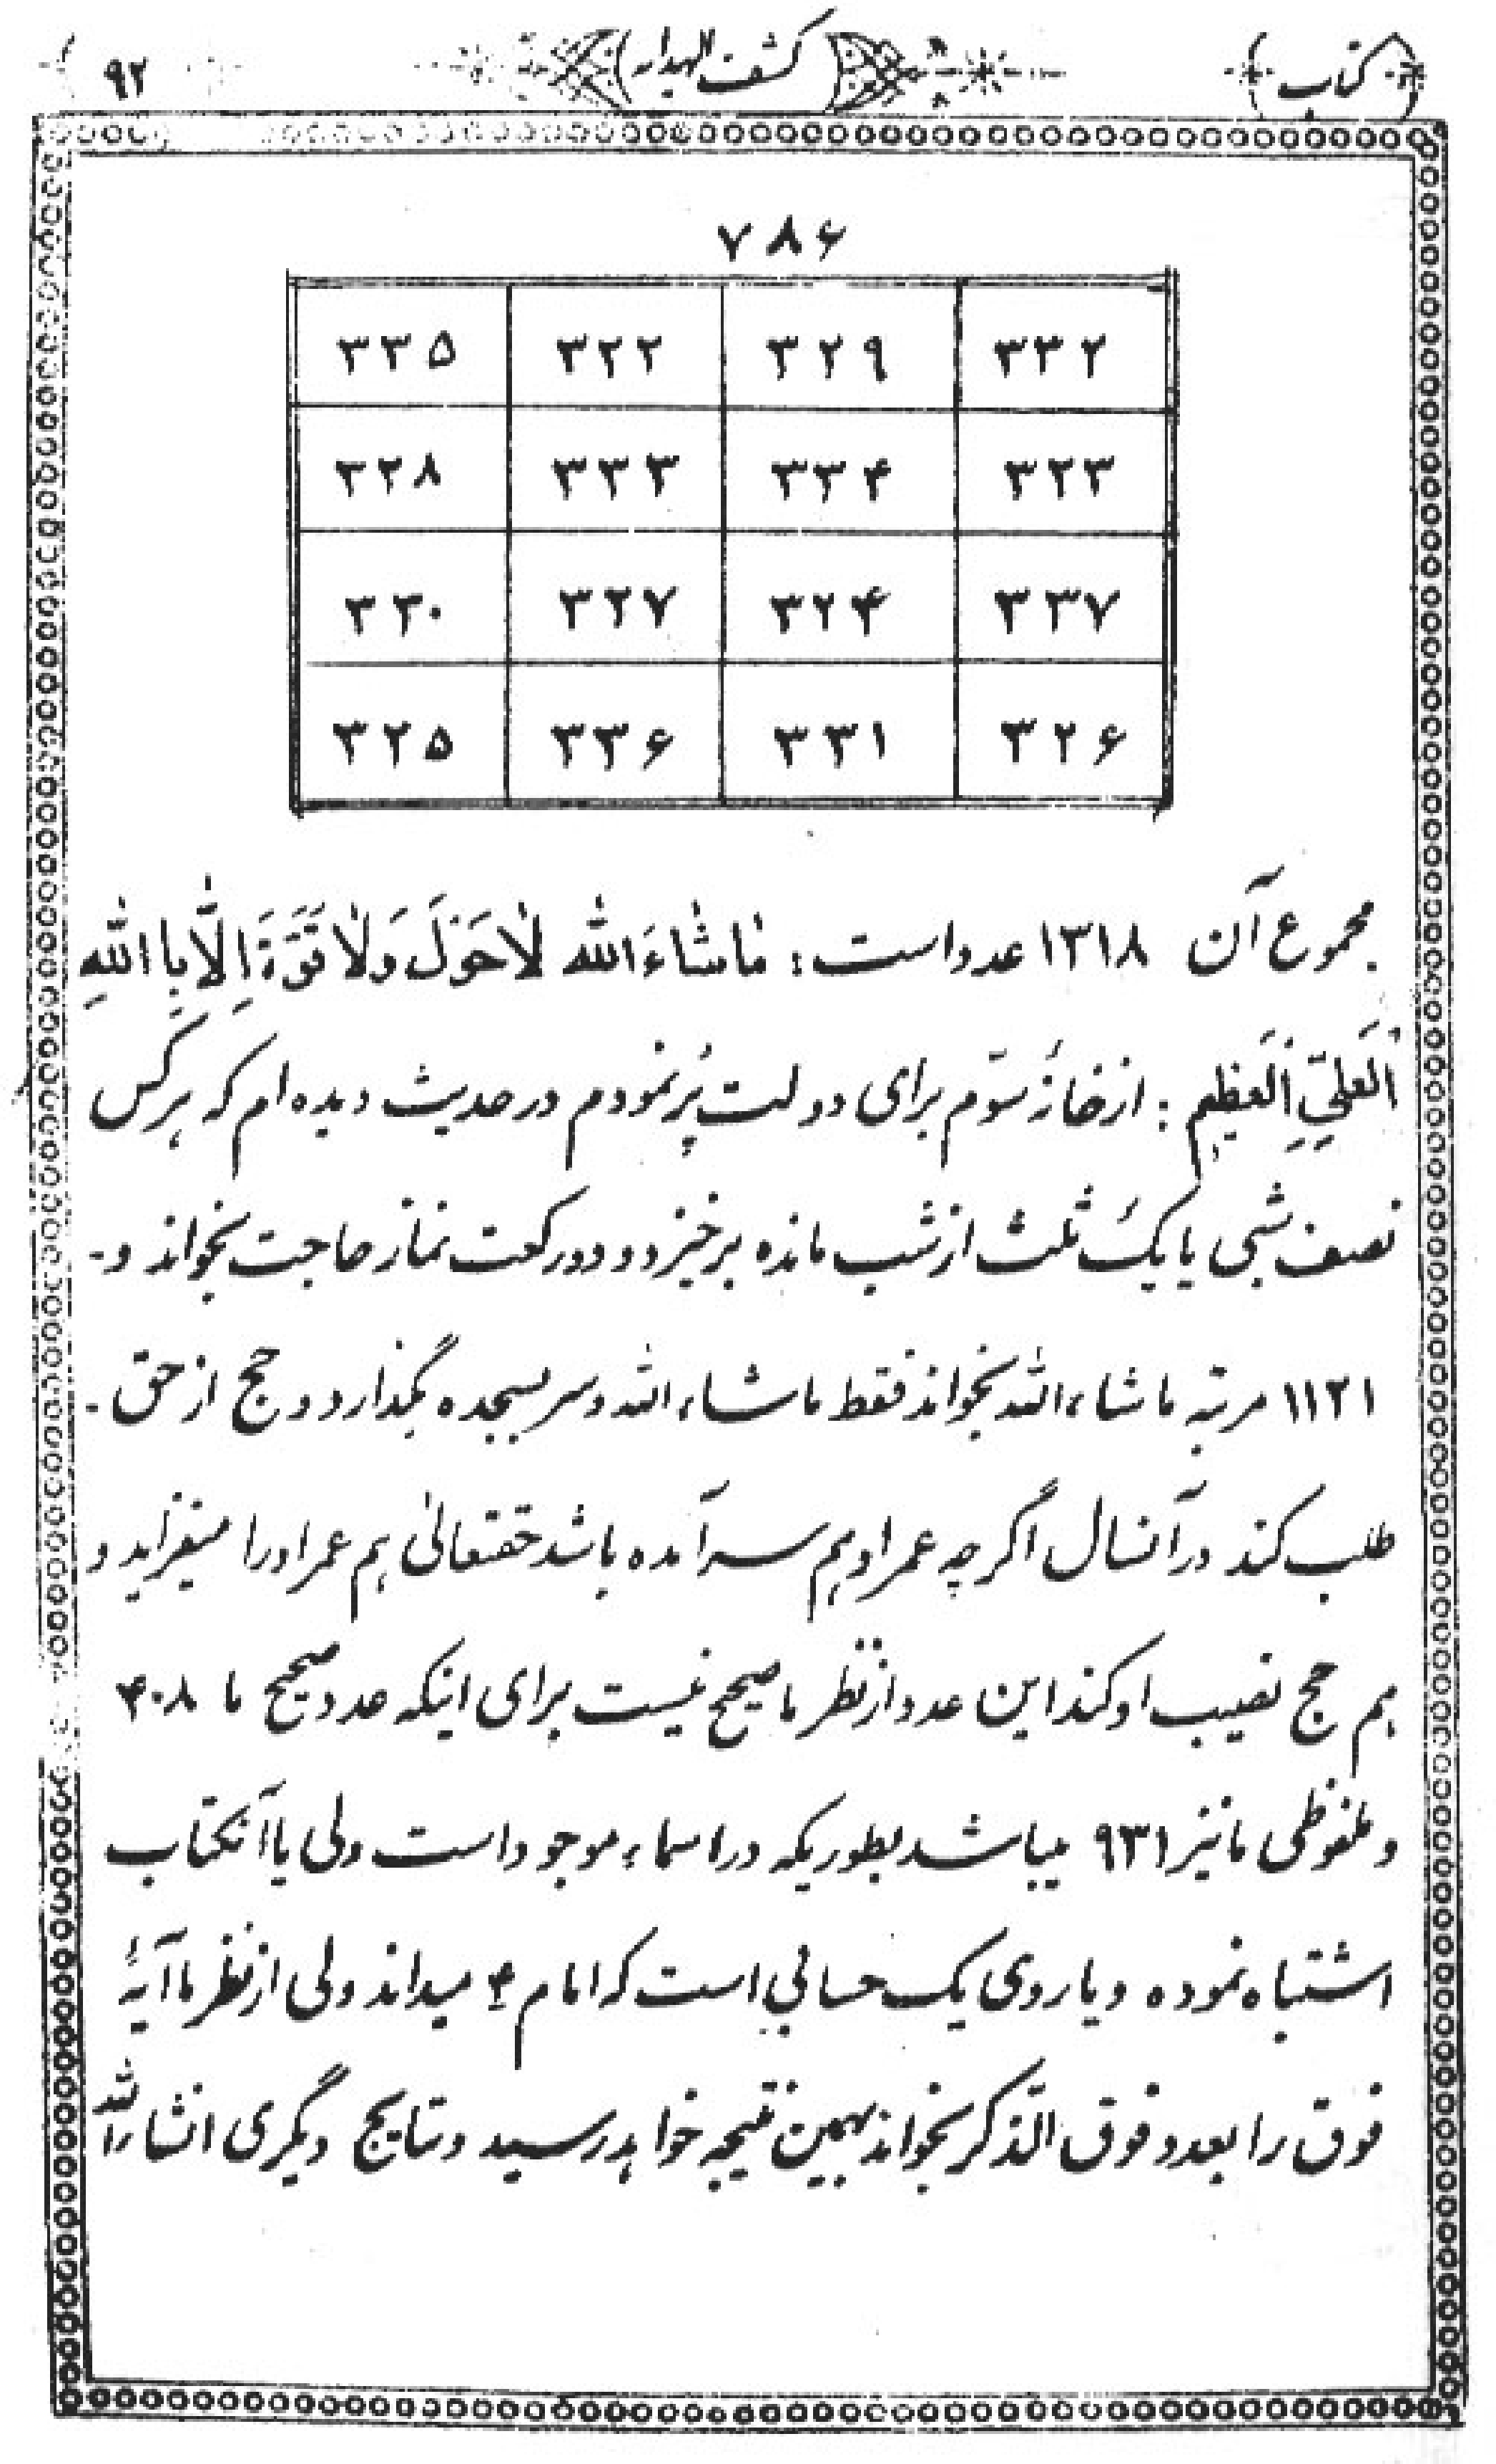 کتاب کشف الهدایه ۹۲
۷۸۶
۳۳۵ ۳۲۲ ۳۲۹ ۳۳۲
۳۲۸ ۳۳۳ ۳۳۴ ۳۲۳
۳۳۰ ۳۲۷ ۳۲۴ ۳۳۷
۳۲۵ ۳۳۶ ۳۳۱ ۳۲۶
مجموع آن ۱۳۱۸ عدد است : مٰاشٰاءَ اللّٰه لٰاحَوْلَ وَلٰا قُوَّةَ اِلّٰا بِا اللّٰهِ
اَلْعَلِيِّ اَلْعَظِیمِ : از خانهٔ سوّم برای دولت پُر نمودم در حدیث دیده‌ام که هر کس
نصف شبی یا یک ثلث از شب مانده برخیزد و دو رکعت نماز حاجت بخواند و -
۱۱۲۱ مرتبه ماشاءالله بخواند فقط ماشاءالله و سر بسجده بگذارد و حج از حق -
طلب کند در آنسال اگر چه عمر او بهم سر آمده باشد حقتعالیٰ هم عمر او را میفزاید و
هم حج نصیب او کند این عدد از نظر ما صحیح نیست برای اینکه عدد صحیح ما ۴۰۸
و ملفوظی ما نیز ۹۳۱ میباشد بطوریکه در اسماء موجود است ولی یا آنکتاب
اشتباه نموده و یا روی یک حسابی است که امام ع میداند ولی از نظر ما آیهٔ
فوق را بعدد فوق الذّکر بخواند بهمین نتیجه خواهد رسید و نتایج دیگری انشاءالله